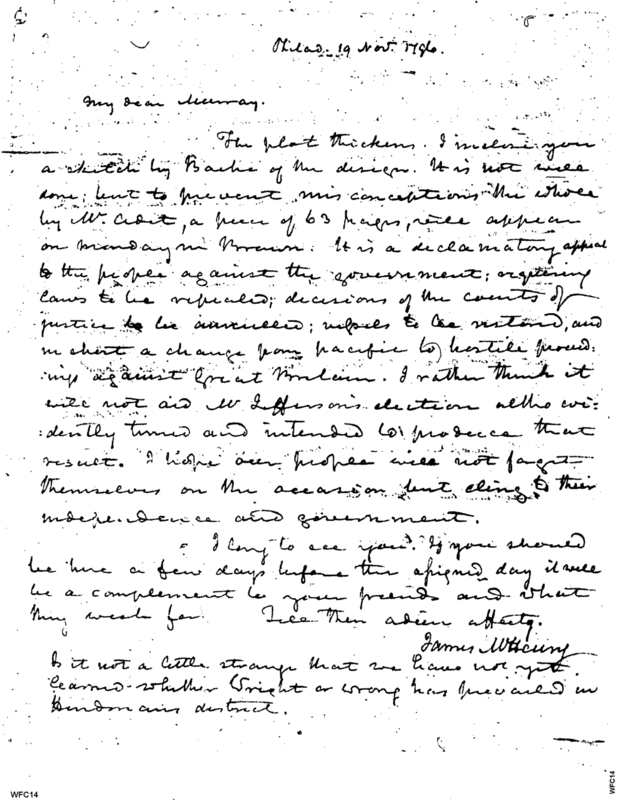 Philad. 19 Nov. 1796.
My dear Murray.
The plot thickens. I inclose you
a sketch by Bache of the design. It is not well
done; but to prevent misconceptions the whole
by Mr. Adet, a piece of 63 pages, will appear
on monday in Brown. It is a declamatory appeal
to the people against the government; requiring
laws to be repealed; decisions of the courts of
justice to be annulled; vessels to be restored, and
in short a change from pacific to hostile proceed:
ings against Great Britain. I rather think it
will not aid Mr Jefferson's election altho evi:
:dently timed and intended to produce that
result. I hope our people will not forget
themselves on the occasion but cling to their
independence and government.
I long to see you. If you should
be here a few days before the assigned day it will
be a complement to your friends and what
they wish for. Till then adieu affecty.
James McHenry
Is it not a little strange that we have not yet
learned whether Wright or wrong has prevailed in
Hindmans district.
WFC14
WFC14